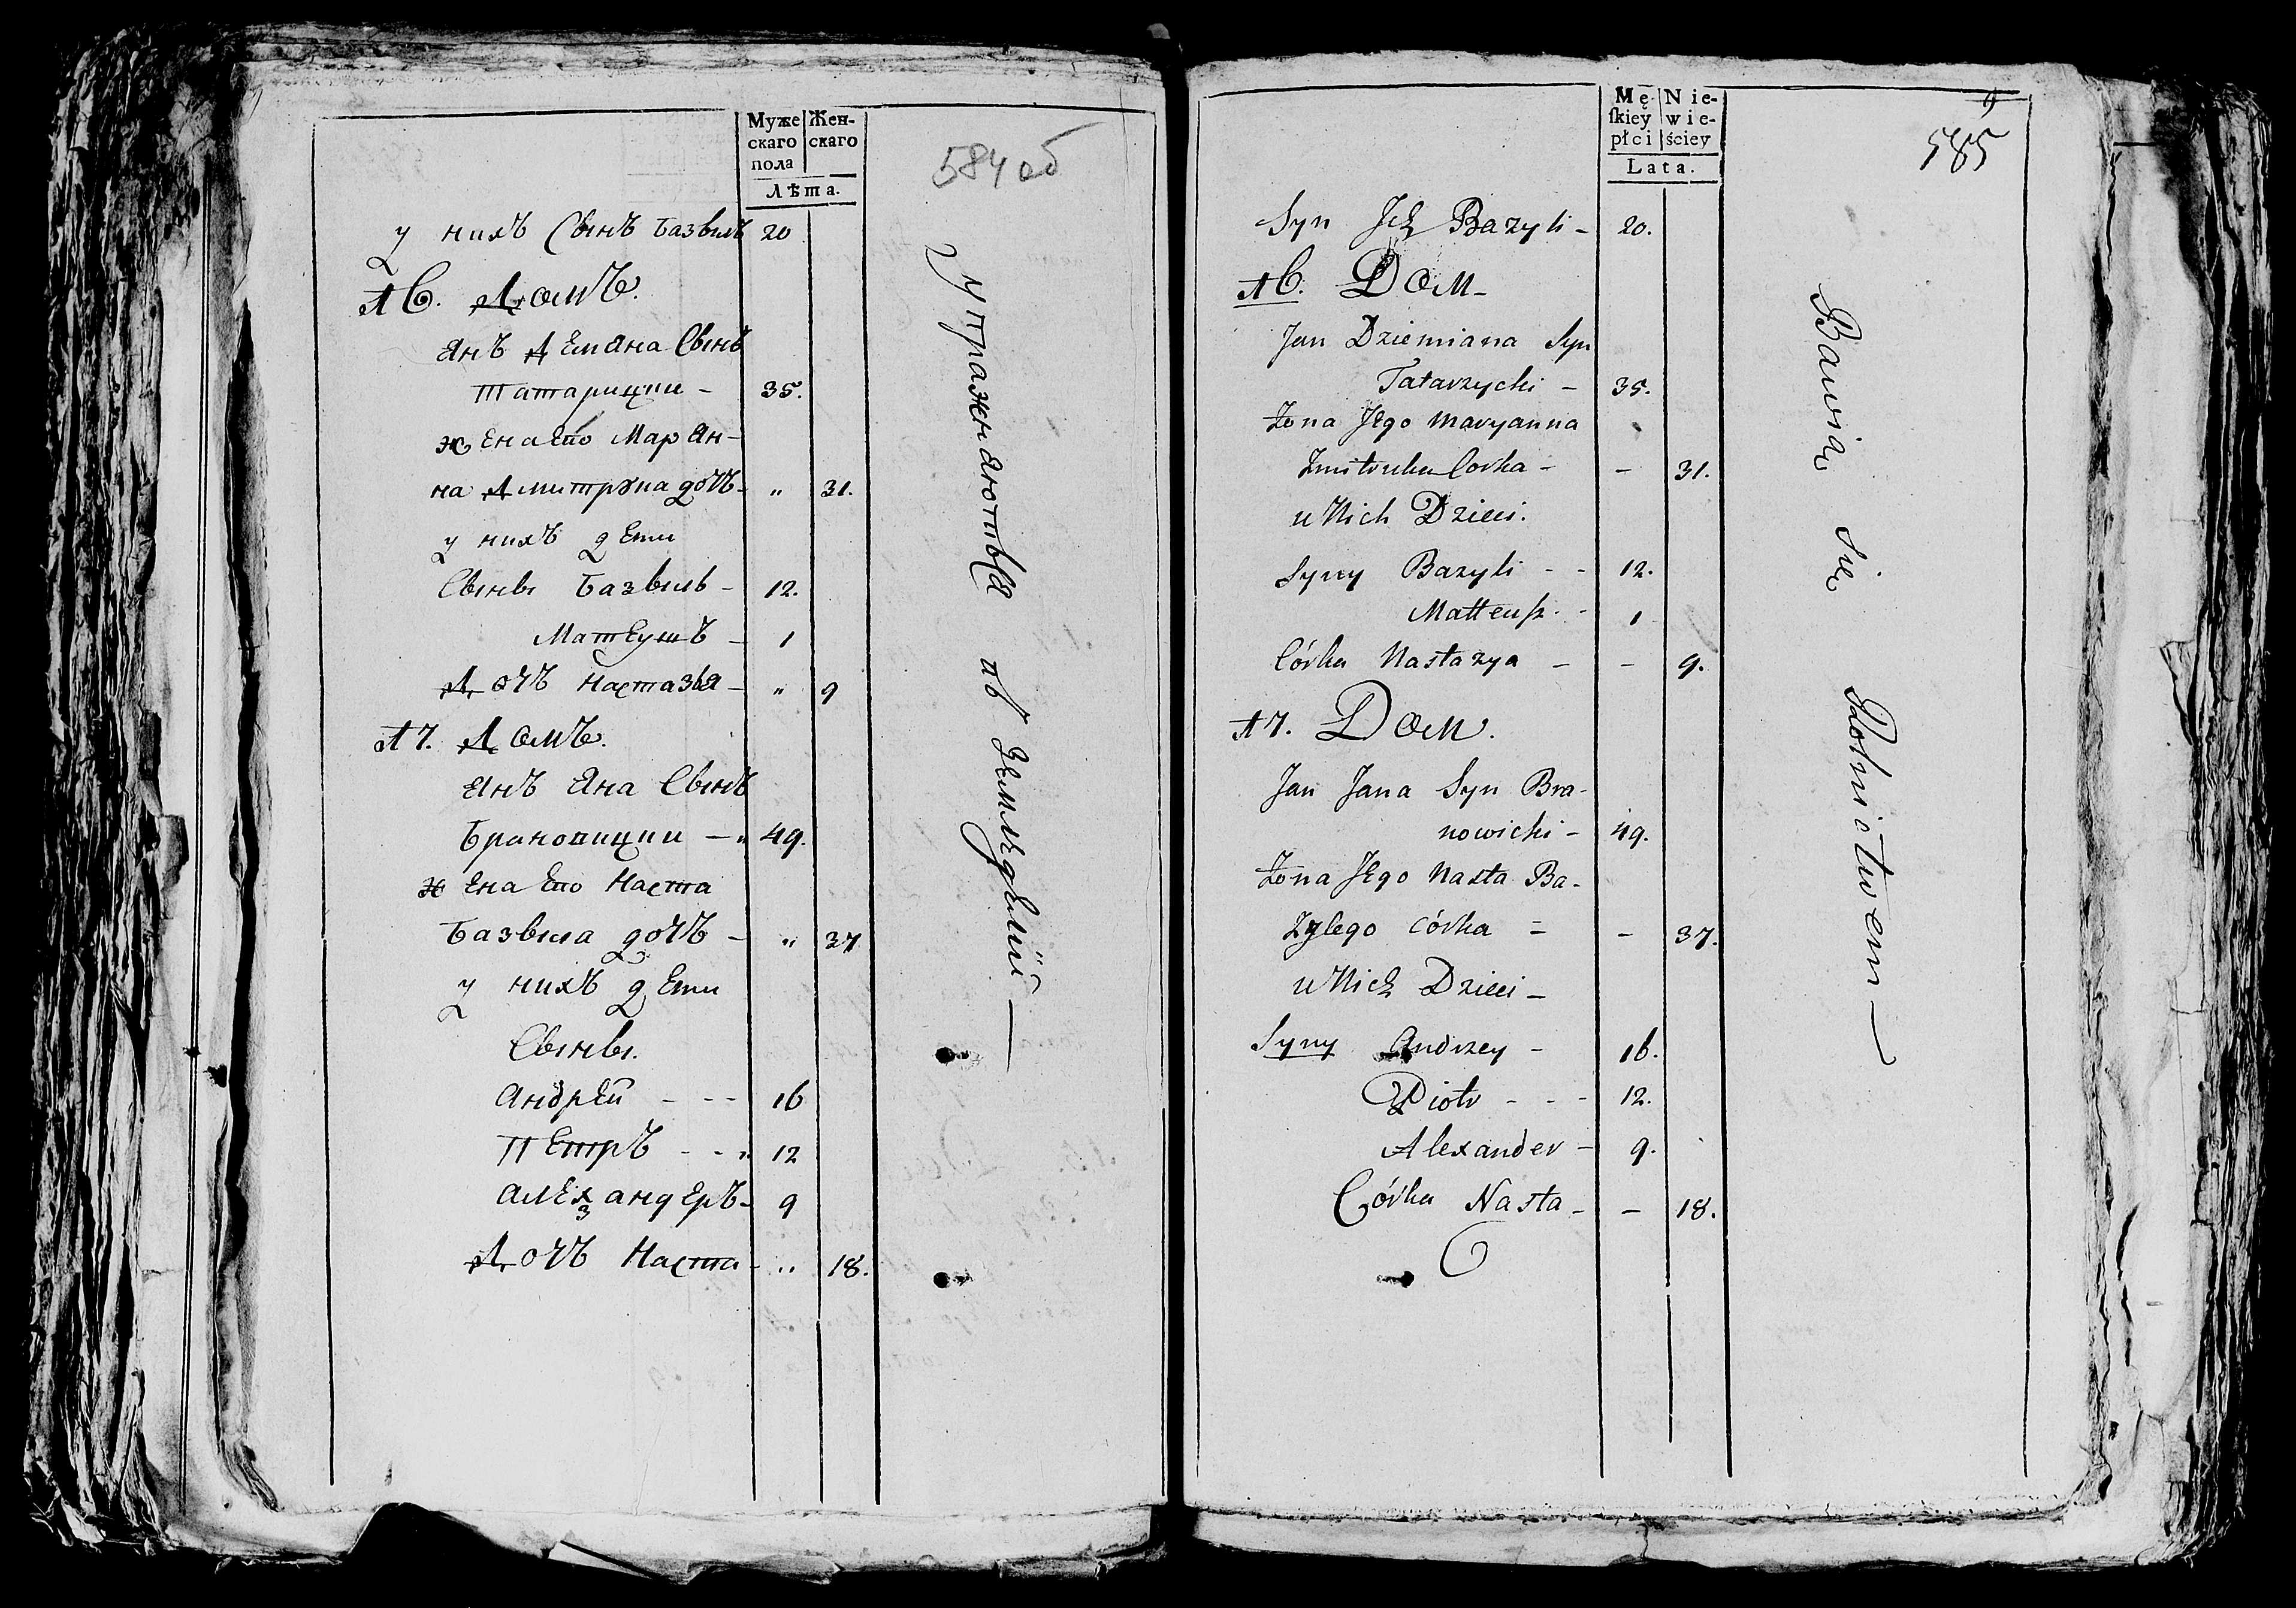 Муже
скаго
пола
Жен-
скаго
Лѣта.
584 об
у нихъ Сынъ Базыль 20
№ 6. Домъ.
Янъ Демяна Сынъ
Татарицки - 35.
жена Его Марян-
на Дмитрука дочь - „ 31.
у нихъ дети
Сыны Базыль - 12.
Матеушъ - 1
Дочь Настазыя - „ 9
№ 7. Домъ.
Янъ Яна Сынъ
Брановицки - 49.
жена Его Наста
Базыла дочь - „ 37
у нихъ дети
Сыны.
Андрей - - - 16
Петръ - - „ 12
Алехзандеръ - 9
Дочь Наста - „ 18.
Упражняются въ земледелии —
Mę-
ſkiey
płci
Nie-
wie-
ściey
Lata.
9
585
Syn Ich Bazyli - 20.
№ 6. Dom -
Jan Dziemiana Syn
Tatarzycki - 35.
Żona Jego Maryanna
Zmitruka Corka - - 31.
u Nich Dzieci.
Syny Bazyli - - 12.
Matteuſz - - 1
Córka Nastazya - - 9.
№ 7. Dom.
Jan Jana Syn Bra-
nowicki - 49.
Żona Jego Nasta Ba-
zylego córka = - 37.
u Nich Dzieci -
Syny Andrzey - 16.
Piotr - - - 12.
Alexander - 9.
Córka Nasta - - 18.
Bawią się Rolnictwem —